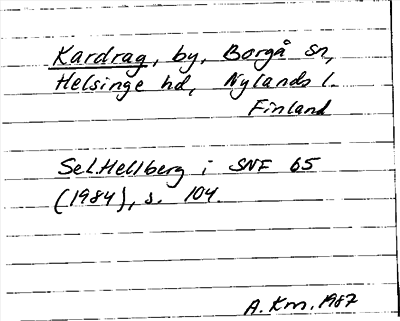 Kardrag, by, Borgå sn,
Helsinge hd, Nylands l.
Finland
Se L. Hellberg i SNF 65
(1984), s. 104.
A. Km. 1987